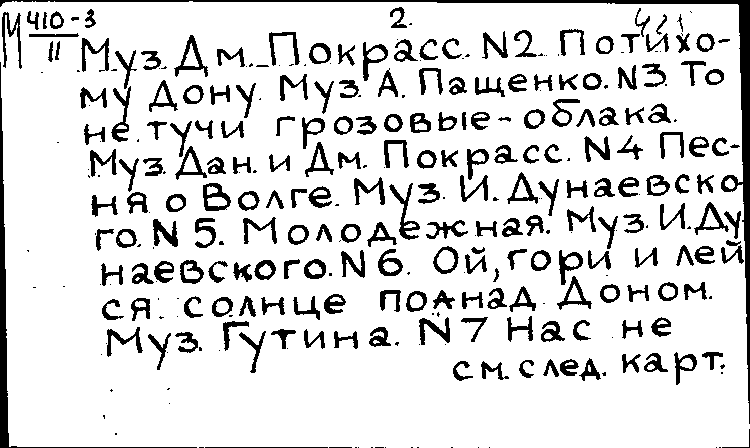 М 410-3 2.
II Муз. Дм. Покрасс. N2 По тихо-
му Дону. Муз. А. Пащенко. N3. То
не тучи грозовые-облака.
Муз. Дан. и Дм. Покрасс. N4 Пес-
ня о Волге. Муз. И. Дунаевско
го. N 5. Молодежная. Муз. И. Ду
наевского. N 6. Ой, гори и лей
ся солнце полнад Доном.
Муз. Гутина. N 7 Нас не
см. след. карт.